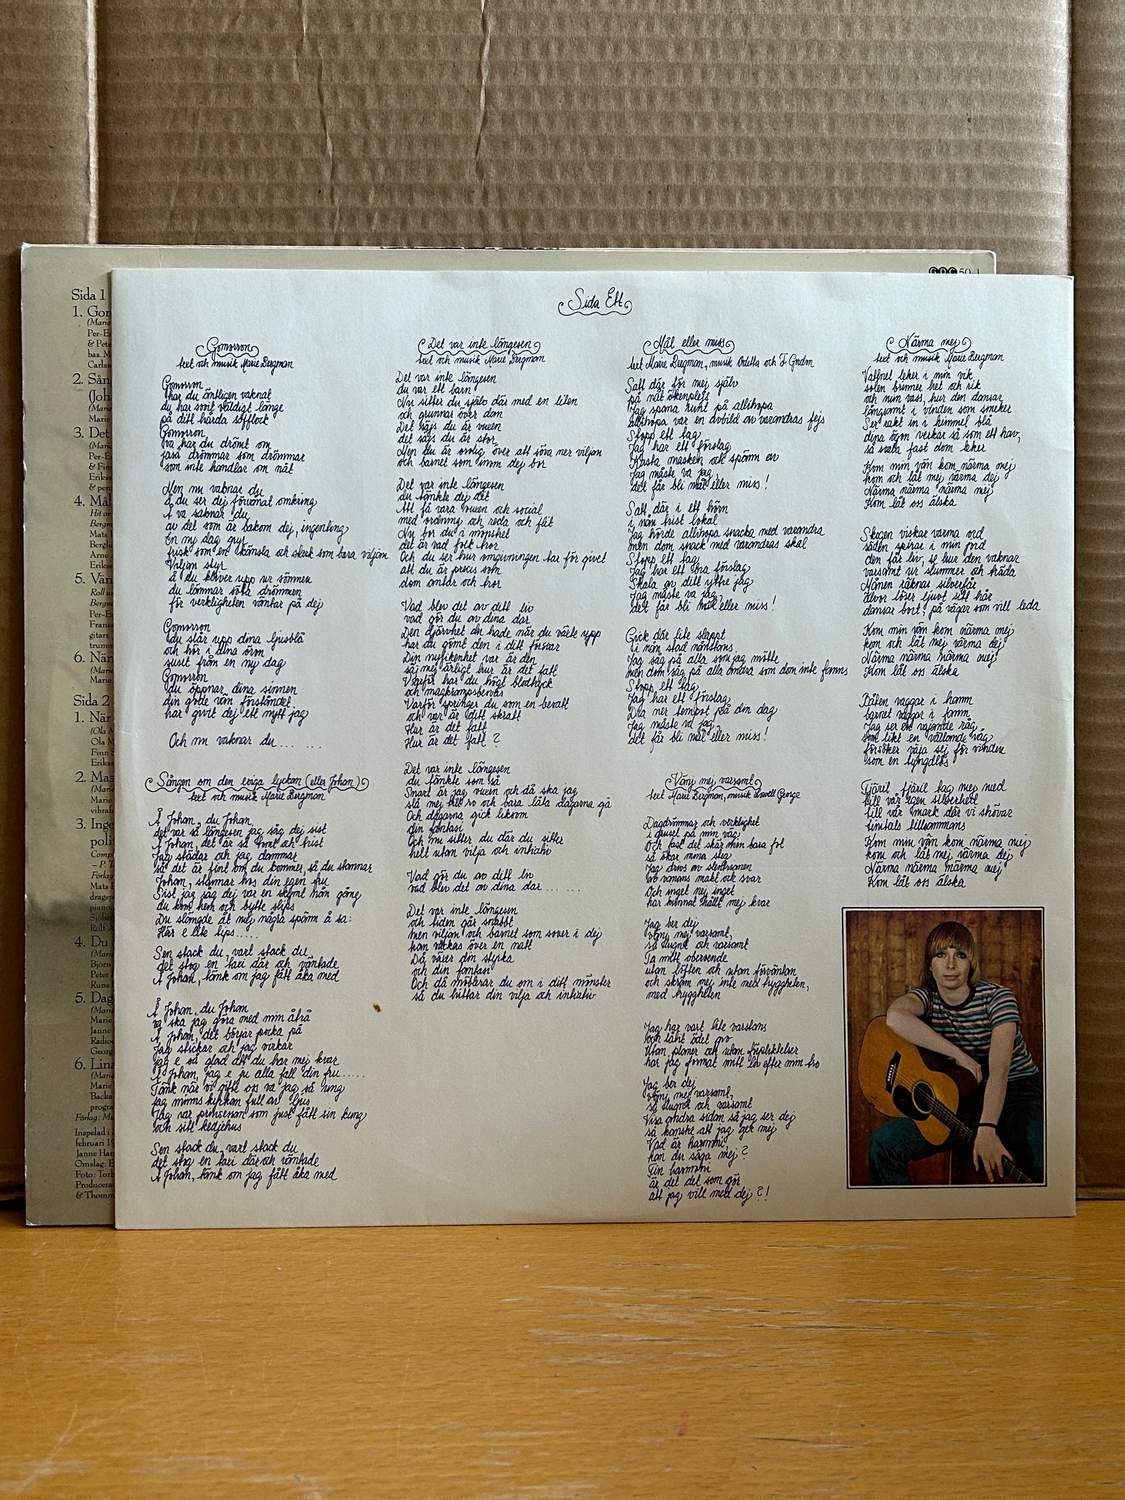 GDC 50-1
Sida 1
1. Gor
(Marie
Per-E
& Pete
bas. M
Carlss
2. Sån
(Joh
(Marie
Marie
3. Det
(Marie
Per-E
& Fin
Eriks
& perc
4. Mål
Hit or
Bergm
Mats
Bergl
Marie
Arne
Eriks
5. Vän
Roll
Bergm
Per-E
Frans
gitarr
trum
6. När
(Marie
Marie
Sida 2
1. När
(Ola M
Ola M
Finn
Eriks
2. Mas
(Marie
Marie
vibraf
3. Inge
poli
Comp
– P. T
Förlag
Mats
drage
piano
Sjöbe
Rolf A
4. Du
Björn
Peter
Rune
5. Dag
(Marie
Marie
Janne
Radio
Georg
6. Lina
(Marie
Marie
Backa
progra
Förlag: M
Inspelad i
februari 19
Janne Han
Omslag: E
Foto: Tor
Producera
& Thomm
Sida Ett
Gomorron
text och musik Marie Bergman
Gomorron
har du äntligen vaknat
du har sovit väldigt länge
på ditt hårda soffloch
Gomorron
va har du drömt om
jasså drömmar som drömmar
som inte handlar om nåt
Men nu vaknar du
å du ser dej förvånat omkring
Å va saknar du
av det som är bakom dej, ingenting
En ny dag gryr
frisk som en känsla och stark som bara viljan
Viljan styr
å du kliver upp ur sömnen
du lämnar såta drömmen
för verkligheten väntar på dej
Gomorron
du slår upp dina ljusblå
och hör i dina öron
suset från en ny dag
Gomorron
du öppnar dina sinnen
din gode vän förståndet
har givit dej ett nytt jag
Och nu vaknar du... ...
Sången om den eviga lyckan (eller Johan)
text och musik Marie Bergman
Å Johan, du Johan
det var så längesen jag såg dej sist
Å Johan, det är så tomt och trist
Jag städar och jag dammar
så det är fint om du kommer, så du stannar
Johan, stannar hos din egen fru
Sist jag såg dej var en skymt häromgång
du kom hem och bytte slips
Du slängde åt mej några spänn å sa:
Här e lite tips.....
Sen stack du, vart stack du
det stog en taxi där och väntade
Å Johan, tänk om jag fått åka med
Å Johan, du Johan
va ska jag göra med min åtrå
Å Johan, det börjar picka på
Jag stickar och jag virkar
Jag e så glad att du har mej kvar
Å Johan, jag e ju alla fall din fru.....
Tänk när vi gifte oss va jag så ung
jag minns kyrkan full av ljus
Jag var prinsessan som just fått sin kung
och sitt kedjehus
Sen stack du, vart stack du
det stog en taxi där och väntade
Å Johan, tänk om jag fått åka med
Det var inte längesen
text och musik Marie Bergman
Det var inte längesen
du var ett barn
Nu sitter du själv där med en liten
och grunnar över den
Det sägs du är vuxen
det sägs du är stor
Men du är orolig över att söva ner viljan
och barnet som inom dej bor
Det var inte längesen
du tänkte dej det
Att få vara vuxen och social
med ordning och reda och flit
Nu bor du i mönstret
det är vad folk tror
Och du ser hur omgivningen tar för givet
att du är precis som
dom omtår och tror
Vad blev det av ditt liv
vad gör du av dina dar
Den djärvhet du hade när du växte upp
har du gömt den i ditt försvar
Din nyfikenhet var är den
säj mej ärligt hur är det fatt
Varför har du högt blodtryck
och magkrampsbesvär
Varför springer du som en besatt
och var är ditt skratt
Hur är det fatt
Hur är det fatt?
Det var inte längesen
du tänkte som så
Snart är jag vuxen och då ska jag
slå mej till ro och bara låta dagarna gå
Och dagarna gick liksom
din fantasi
Och nu sitter du där du sitter
helt utan vilja och intuition
Vad gör du av ditt liv
vad blev det av dina dar... ...
Det var inte längesen
och tiden går snabbt
men viljan och barnet som sover i dej
kan väckas över en natt
Då växer din styrka
och din fantasi
Och då möblerar du om i ditt mönster
så du hittar din vilja och intuition
Mål eller miss
text Marie Bergman, musik Odetta och F Gordon
Satt där för mej själv
på nåt ökenplejs
Jag spana runt på allihopa
allihopa var en avbild av varandras fejs
Stopp ett tag
Jag har ett förslag
Kasta masken och spänn av
Jag måste va jag
det får bli mål eller miss!
Satt där i ett hörn
i nån trist lokal
Jag hörde allihopa snacka med varandra
men dom snack med varandras skal
Stopp ett tag
Jag har ett bra förslag
Skala av ditt yttre jag
Jag måste va jag
det får bli mål eller miss!
Gick där lite släppt
i nån stad nånstans
Jag såg på alla som jag mötte
men dom såg på alla andra som dom inte fanns
Stopp ett tag
Jag har ett förslag
Dra ner tempot på din dag
Jag måste va jag
det får bli mål eller miss!
Vänj mej varsamt
text Marie Bergman, musik Lowell George
Dagdrömmar och verklighet
i grusel på min väg
Och fast det skär min bara fot
så ökar mina steg
Jag drivs av stenronen
av romans makt och svar
Och inget nej inget
har kunnat hållt mej kvar
Jag ber dej
vänj mej varsamt,
så lugnt och varsamt
Ta mitt oberoende
utan löften och utan förväntan
och skräm mej inte med trygghten,
med tryggheten
Jag har vart lite varstans
och låtit ödet gro
Utan planer och utan förpliktelser
har jag format mitt liv efter min tro
Jag ber dej
vänj mej varsamt,
så lugnt och varsamt
Visa andra sidan så jag ser dej
så kanske att jag ger mej
Vad är harmoni,
kan du säga mej?
Din harmoni
är det det som gör
att jag vill med dej?!
Närma mej
text och musik Marie Bergman
Vattnet leker i min vik
solen brinner het och rik
och min vass, hur den dansar
långsamt i vinden som smeker
Ser rakt in i himmel blå
dina ögon verkar så som ett hav,
så svala fast dom leker
Kom min vän kom närma mej
kom och låt mej värma dej
Närma närma närma mej
Kom låt oss älska
Skogen viskar varma ord
säden spirar i min jord
den får liv, se hur den vaknar
varsamt ur slummer och träda
Månen räknas silverfär
älvor löser ljust sitt hår
dansar bort på vägar som vill leda
Kom min vän kom närma mej
kom och låt mej värma dej
Närma närma närma mej
Kom låt oss älska
Båten vaggar i hamn
barnet vaggar i famn
Jag ser en svävande råg
som likt en vältande våg
försöker väja sej för vinden
som en lyngdlös
Fjäril, fjäril tag mej med
till vår egen silverhed
till vår mark där vi strövar
tinstals tillsammans
Kom min vän kom närma mej
kom och låt mej värma dej
Närma närma närma mej
Kom låt oss älska